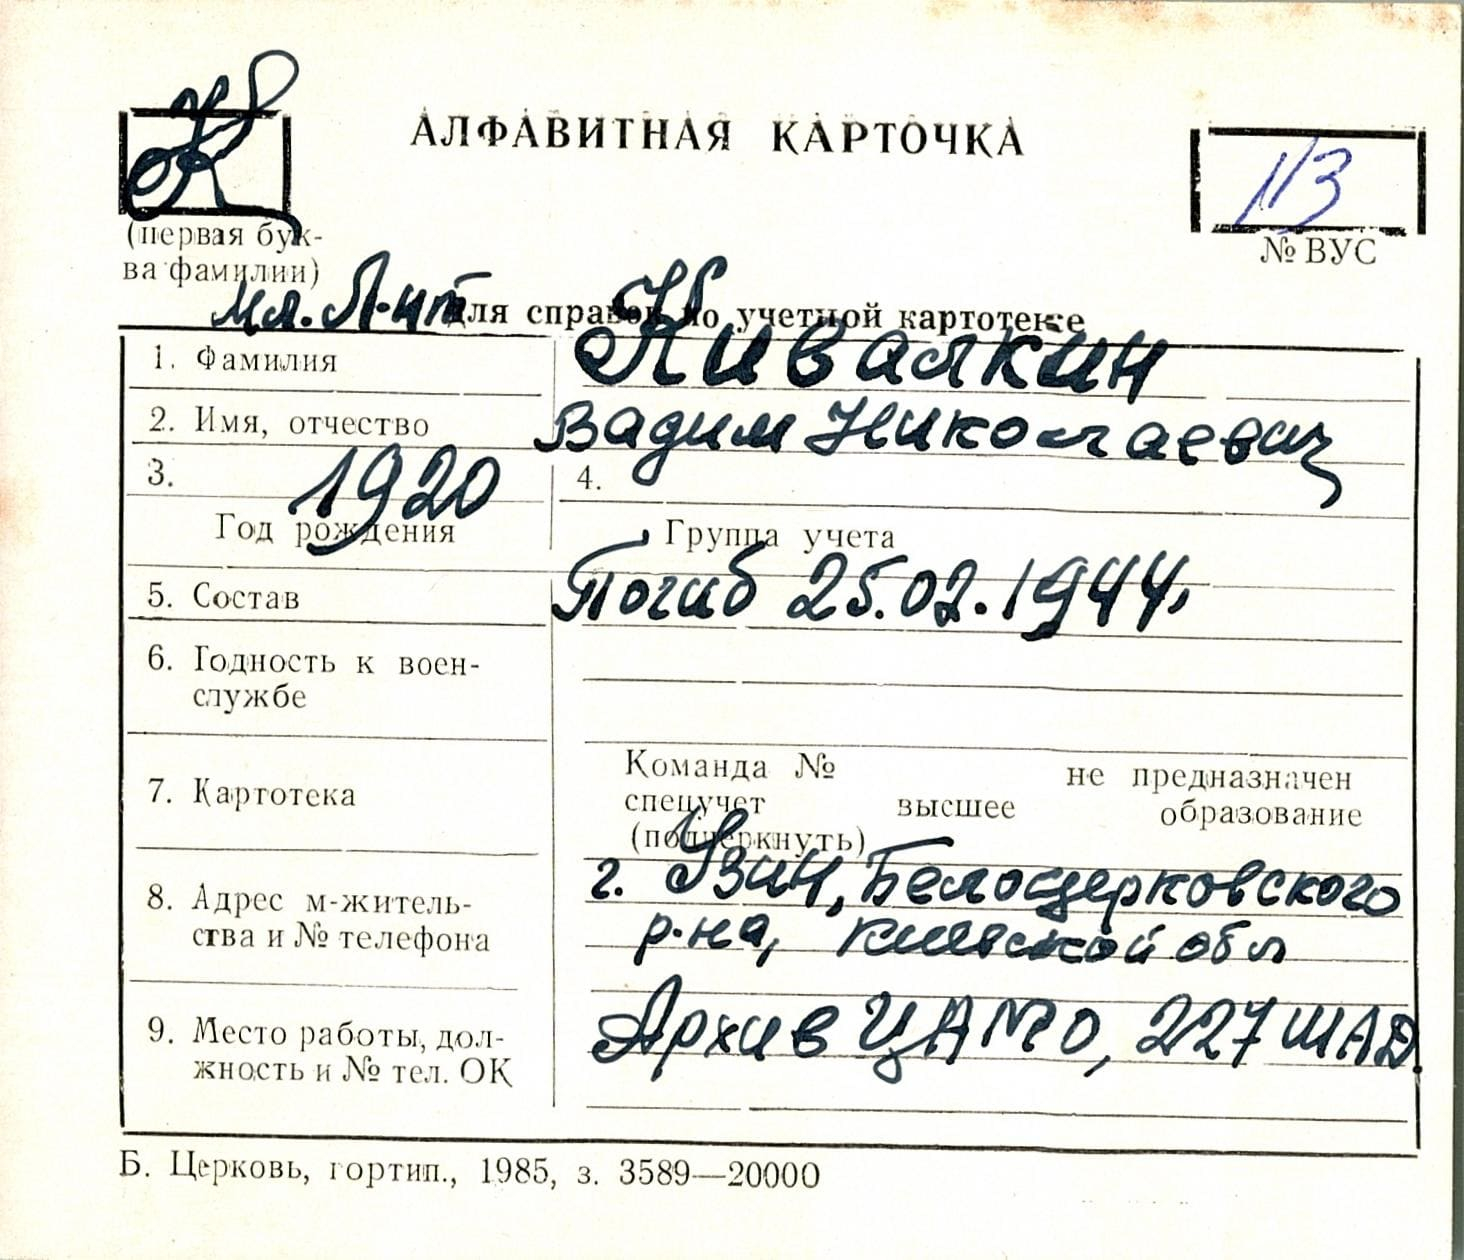 К
АЛФАВИТНАЯ КАРТОЧКА
113
(первая бук-
ва фамилии)
№ ВУС
мл. Л-нт
Для справок по учетной картотеке
1. Фамилия Кивалкин
2. Имя, отчество Вадим Николаевич
3. 1920 4.
Год рождения Группа учета
5. Состав Погиб 25.02.1944,
6. Годность к воен-
службе
Команда № не предназначен
7. Картотека спецучет высшее образование
(подчеркнуть)
8. Адрес м-житель-
ства и № телефона
г. Узин, Белоцерковского
р-на, Киевской обл
9. Место работы, дол-
жность и № тел. ОК
Архив ЦАМО, 227 ШАД.
Б. Церковь, гортип., 1985, з. 3589—20000